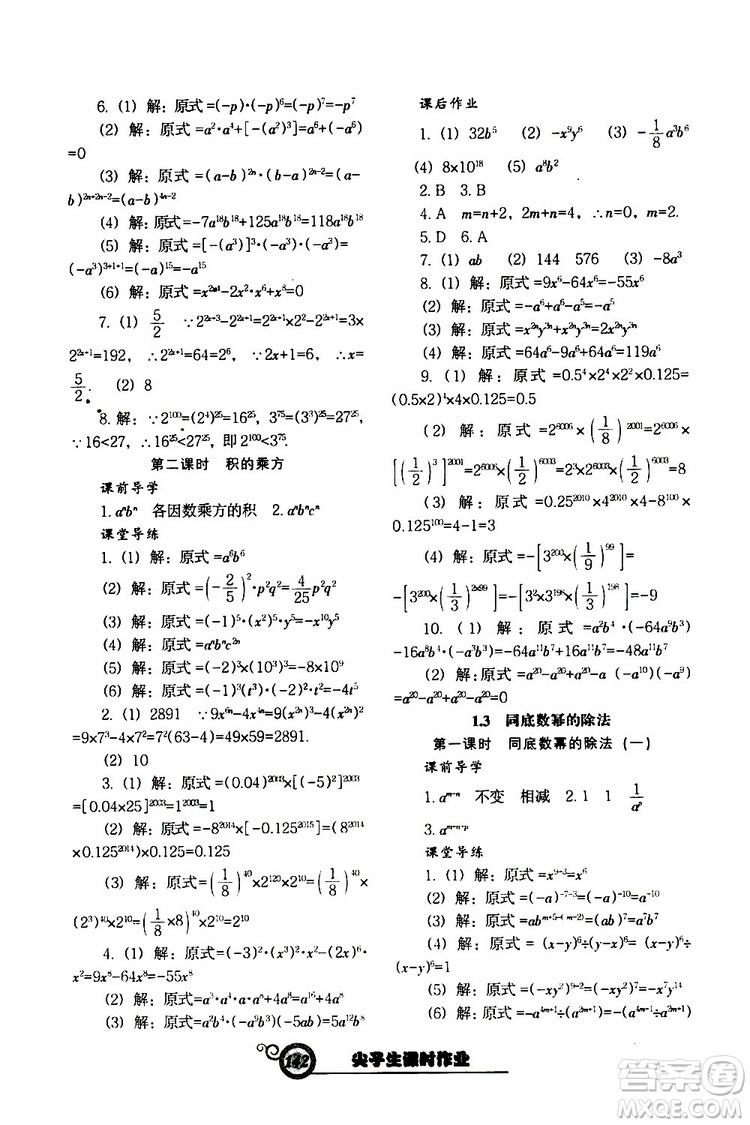 6. (1) 解：原式=(-p)·(-p)⁶=(-p)⁷=-p⁷
(2) 解：原式=a²·a⁴+[-(a²)³]=a⁶+(-a⁶)
=0
(3) 解：原式=(a-b)²ⁿ·(b-a)²ⁿ⁻²=(a-
b)²ⁿ⁺²ⁿ⁻²=(a-b)⁴ⁿ⁻²
(4) 解：原式=-7a¹⁸b¹⁸+125a¹⁸b¹⁸=118a¹⁸b¹⁸
(5) 解：原式=[-(a³)]³·(-a³)·(-a³)=
(-a³)³⁺¹⁺¹=(-a)¹⁵=-a¹⁵
(6) 解：原式=x²ⁿ⁺¹-2x²·x⁶+x⁸=0
7. (1) 5/2 ∵2²ˣ⁺³-2²ˣ⁺¹=2²ˣ⁺¹×2²-2²ˣ⁺¹=3×
2²ˣ⁺¹=192，∴2²ˣ⁺¹=64=2⁶，∴2x+1=6，∴x=
5/2. (2) 8
8. 解：∵2¹⁰⁰=(2⁴)²⁵=16²⁵，3⁷⁵=(3³)²⁵=27²⁵，
∵16<27，∴16²⁵<27²⁵，即2¹⁰⁰<3⁷⁵.
第二课时 积的乘方
课前导学
1. aⁿbⁿ 各因数乘方的积 2. aⁿbⁿcⁿ
课堂导练
1. (1) 解：原式=a⁶b⁶
(2) 解：原式=(-2/5)²·p²q²=4/25p²q²
(3) 解：原式=(-1)⁵·(x²)⁵·y⁵=-x¹⁰y⁵
(4) 解：原式=aⁿbⁿc²ⁿ
(5) 解：原式=(-2)²·(x³)²·(y⁴)²=4x⁶y⁸
(6) 解：原式=(-1)³(t²)·(-t)²=-t⁵
2. (1) 2891 ∵9⁶ⁿ-4⁴ⁿ=(9²ⁿ)³-(4²ⁿ)²
=9x³-4x²=7x²(63-4)=49×59=2891.
(2) 10
3. (1) 解：原式=(0.04)²⁰⁰³×[(-5)²]²⁰⁰³
=[0.04×25]²⁰⁰³=1²⁰⁰³=1
(2) 解：原式=-8²⁰¹⁴×[-0.125²⁰¹⁵]=(8²⁰¹⁴
×0.125²⁰¹⁴)×0.125=0.125
(3) 解：原式=(1/8)⁴⁰×2¹²⁰×2¹²⁰=(1/8)⁴⁰×
(2³)⁴⁰×2¹²⁰=(1/8×8)⁴⁰×2¹²⁰=2¹²⁰
4. (1) 解：原式=(-3)²·(x³)²-(4x)³·
x²=9x⁸-64x⁸=-55x⁸
(2) 解：原式=a³·a⁴·a+a⁸+4a⁸=6a⁸
(3) 解：原式=a²b⁴·(-a⁹b³)(-5ab)=5a¹²b⁸
课后作业
1. (1) 32b⁵ (2) -x⁹y⁶ (3) -1/8a³b⁶
(4) 8×10¹⁸ (5) a⁸b²
2. B 3. B
4. A m=n+2，2m+n=4，∴n=0，m=2.
5. D 6. A
7. (1) ab (2) 144 576 (3) -8a³
8. (1) 解：原式=9x⁶-64x⁶=-55x⁶
(2) 解：原式=-a⁶+a⁶-a⁶=-a⁶
(3) 解：原式=x²ⁿy³ⁿ+x²ⁿy³ⁿ=2x²ⁿy³ⁿ
(4) 解：原式=64a⁶-9a⁶+64a⁶=119a⁶
9. (1) 解：原式=0.5⁴×2⁴×2²×0.125=
(0.5×2)⁴×4×0.125=0.5
(2) 解：原式=2⁶⁰⁰⁶×(1/8)²⁰⁰¹=2⁶⁰⁰⁶×
[(1/2)³]²⁰⁰¹=2⁶⁰⁰⁶×(1/2)⁶⁰⁰³=2³=8
(3) 解：原式=0.25²⁰¹⁰×4²⁰¹⁰×4-8¹⁰⁰×
0.125¹⁰⁰=4-1=3
(4) 解：原式=-[3²⁰⁰×(1/9)⁹⁹]=
-[3²⁰⁰×(1/3)²ˣ⁹⁹]=-[3²×3¹⁹⁸×(1/3)¹⁹⁸]=-9
10. (1) 解：原式=a²b⁴·(-64a⁹b³)
-16a⁸b⁴·(-a³b³)=-64a¹¹b⁷+16a¹¹b⁷=-48a¹¹b⁷
(2) 解：原式=a²⁰-a²⁰+a²⁰-a (-a¹⁰)(-a⁹)
=a²⁰-a²⁰+a²⁰-a²⁰=0
1.3 同底数幂的除法
第一课时 同底数幂的除法(一)
课前导学
1. aᵐ⁻ⁿ 不变 相减 2. 1 1 1/aᵖ
3. aᵐ⁻ⁿ⁻ᵖ
课堂导练
1. (1) 解：原式=x⁹⁻³=x⁶
(2) 解：原式=(-a)⁻⁷⁻³=(-a)⁻¹⁰=a⁻¹⁰
(3) 解：原式=abᵐ⁺⁵⁻⁽ᵐ⁻²⁾=ab⁷
(4) 解：原式=(x-y)⁶÷(-x+y)⁶=(x-y)⁶÷
(x-y)⁶=1
(5) 解：原式=(-xy²)⁹⁻²=(-xy²)⁷=-x⁷y¹⁴
(6) 解：原式=-a⁴ᵐ⁻¹÷(-a²ᵐ⁺¹)=a⁴ᵐ⁻¹÷a²ᵐ⁺¹
142 尖子生课时作业
答案圈
MXQE.COM